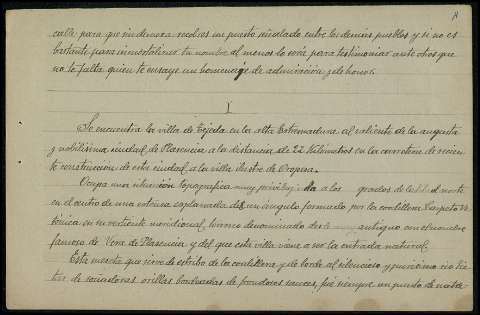 calle para que sin demora recobres un puesto niculado entre los demás pueblos y si no es
bastante para inmortalizar tu nombre al menos lo será para testimoniar ante otros que
no te falta quien te ensaye un homenaje de admiración y de honor.
I
Se encuentra la villa de Tejeda en la alta Estremadura al saliente de la augusta
y nobilísima ciudad de Plasencia a la distancia de 22 Kilómetros en la carretera de recien
te construcción de esta ciudad a la villa ilustre de Oropesa.
Ocupa una situación topográfica muy privilegiada a los grados de latitud norte
en el centro de una extensa esplanada de un ángulo formado por la cordillera Carpeto Ve
tónica en su vertiente meridional, terreno denominado desde muy antiguo con el nombre
famoso de Vera de Plasencia y del que esta villa viene a ser la entrada natural.
Esta meseta que sirve de estribo de la cordillera y de borde al silencioso y purísimo rio Tie
tar de soñadoras orillas bordeadas de frondosos sauces, fué siempre un punto de